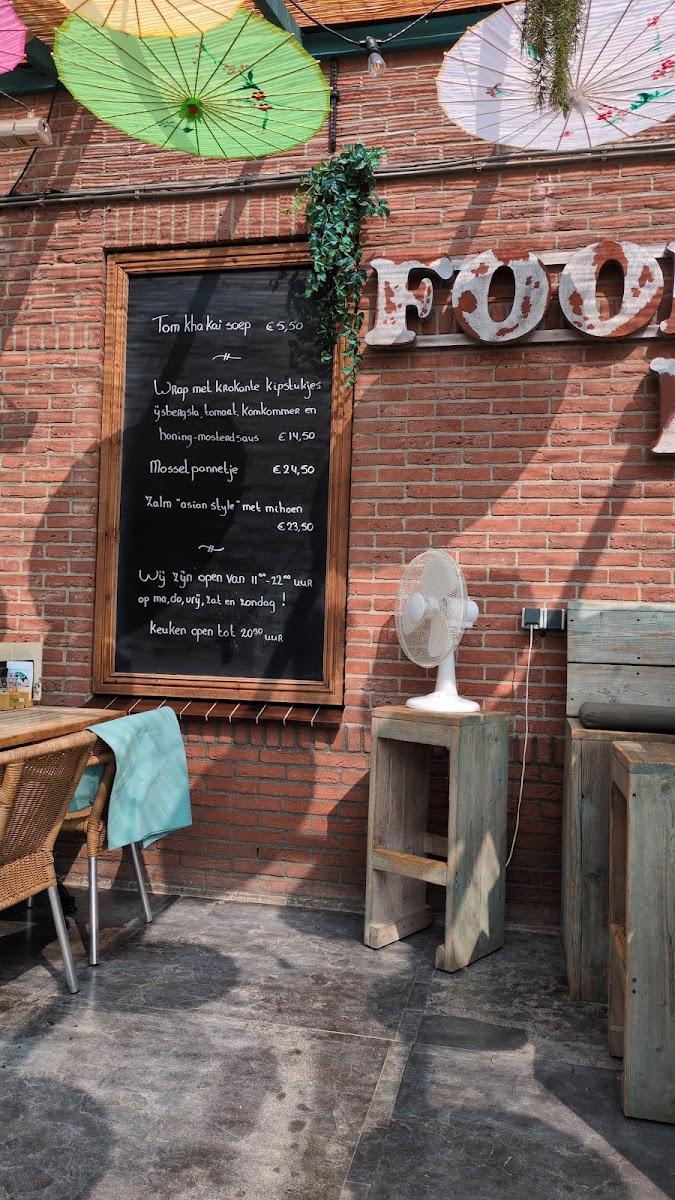 Tom kha kai soep €5,50
Wrap met krokante kipstukjes
ijsbergsla, tomaat, komkommer en
honing-mosterdsaus €14,50
Mosselpannetje €24,50
Zalm "asian style" met mihoen
€23,50
Wij zijn open van 11⁰⁰-22⁰⁰ uur
op ma, do, vrij, zat en zondag!
Keuken open tot 20³⁰ uur
FOO